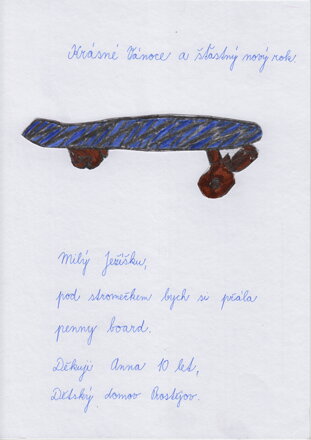 Krásné Vánoce a šťastný nový rok.
Milý Ježíšku,
pod stromečkem bych si přála
penny board.
Děkuji Anna 10 let,
Dětský domov Prostějov.